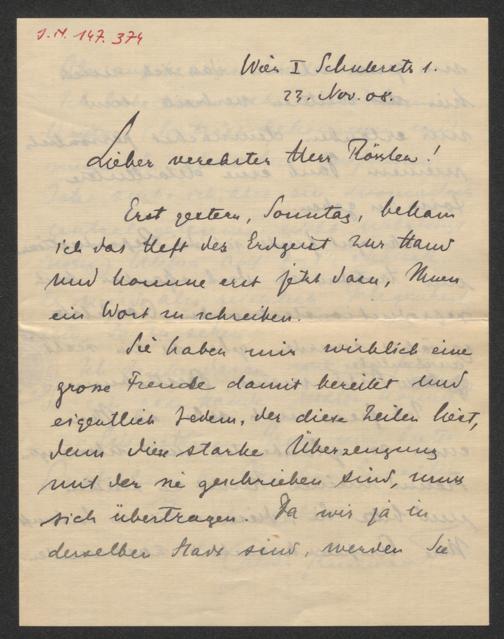 J.N. 147.374
Wien I Schulerstr 1.
23. Nov. 08.
Lieber verehrter Herr Rößler!
Erst gestern, Sonntag, bekam
ich das Heft des Erdgeist zur Hand
und komme erst jetzt dazu, Ihnen
ein Wort zu schreiben.
Sie haben mir wirklich eine
grosse Freude damit bereitet und
eigentlich Jedem, der diese Zeilen liest,
denn diese starke Überzeugung
mit der sie geschrieben sind, muss
sich übertragen. Da wir ja in
derselben Stadt sind, werden Sie